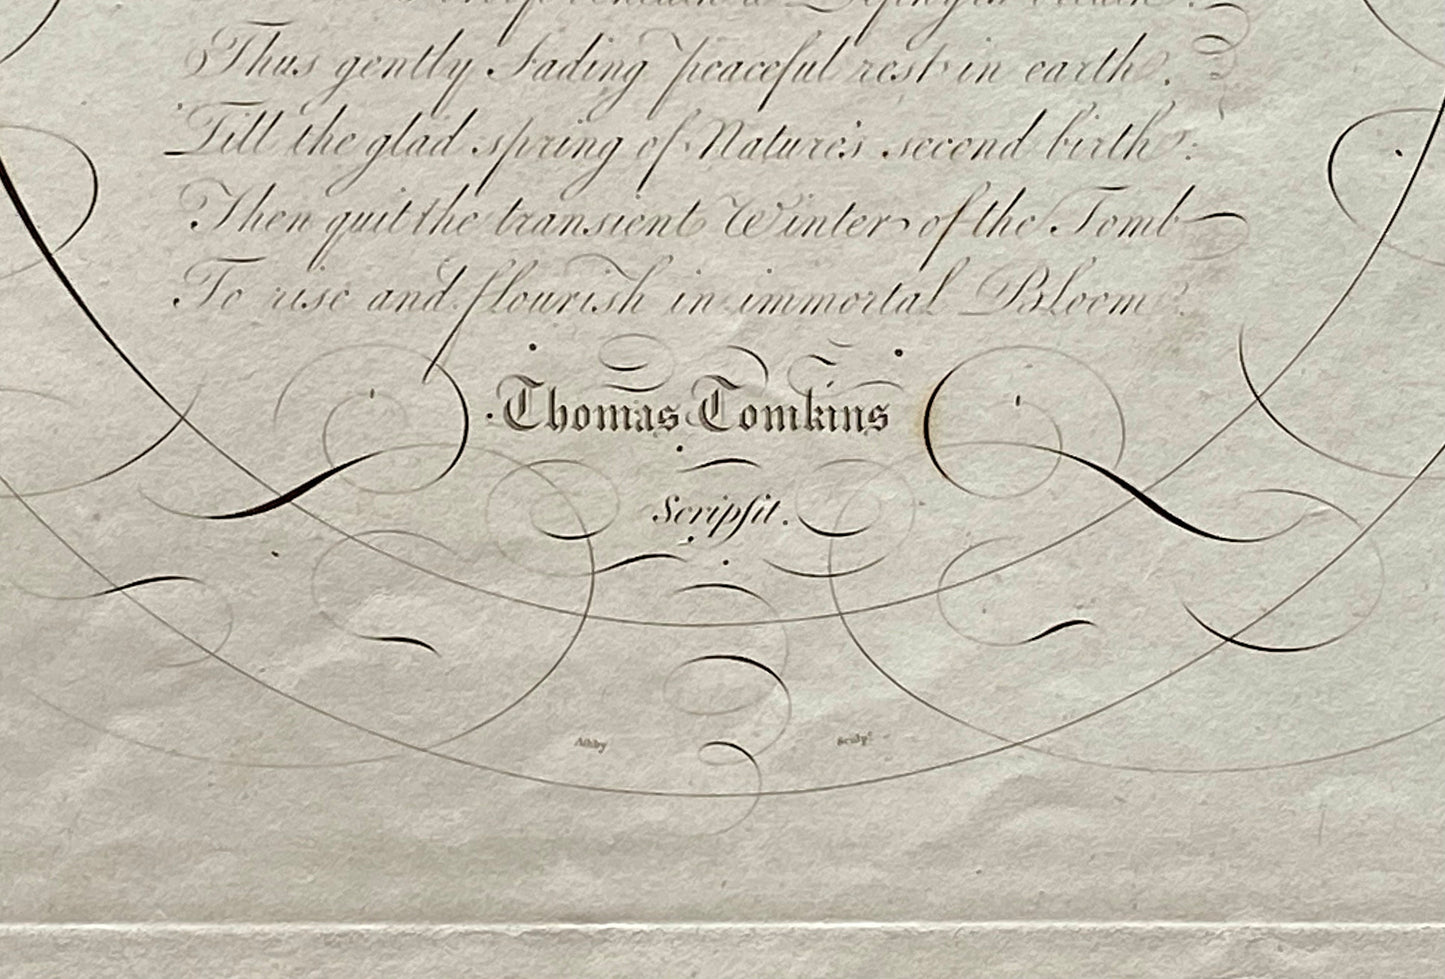 Thus gently fading peaceful rest in earth.
Till the glad spring of Nature's second birth:
Then quit the transient Winter of the Tomb
To rise and flourish in immortal Bloom.
Thomas Tomkins
Scripſit.
Ashby Sculpt.